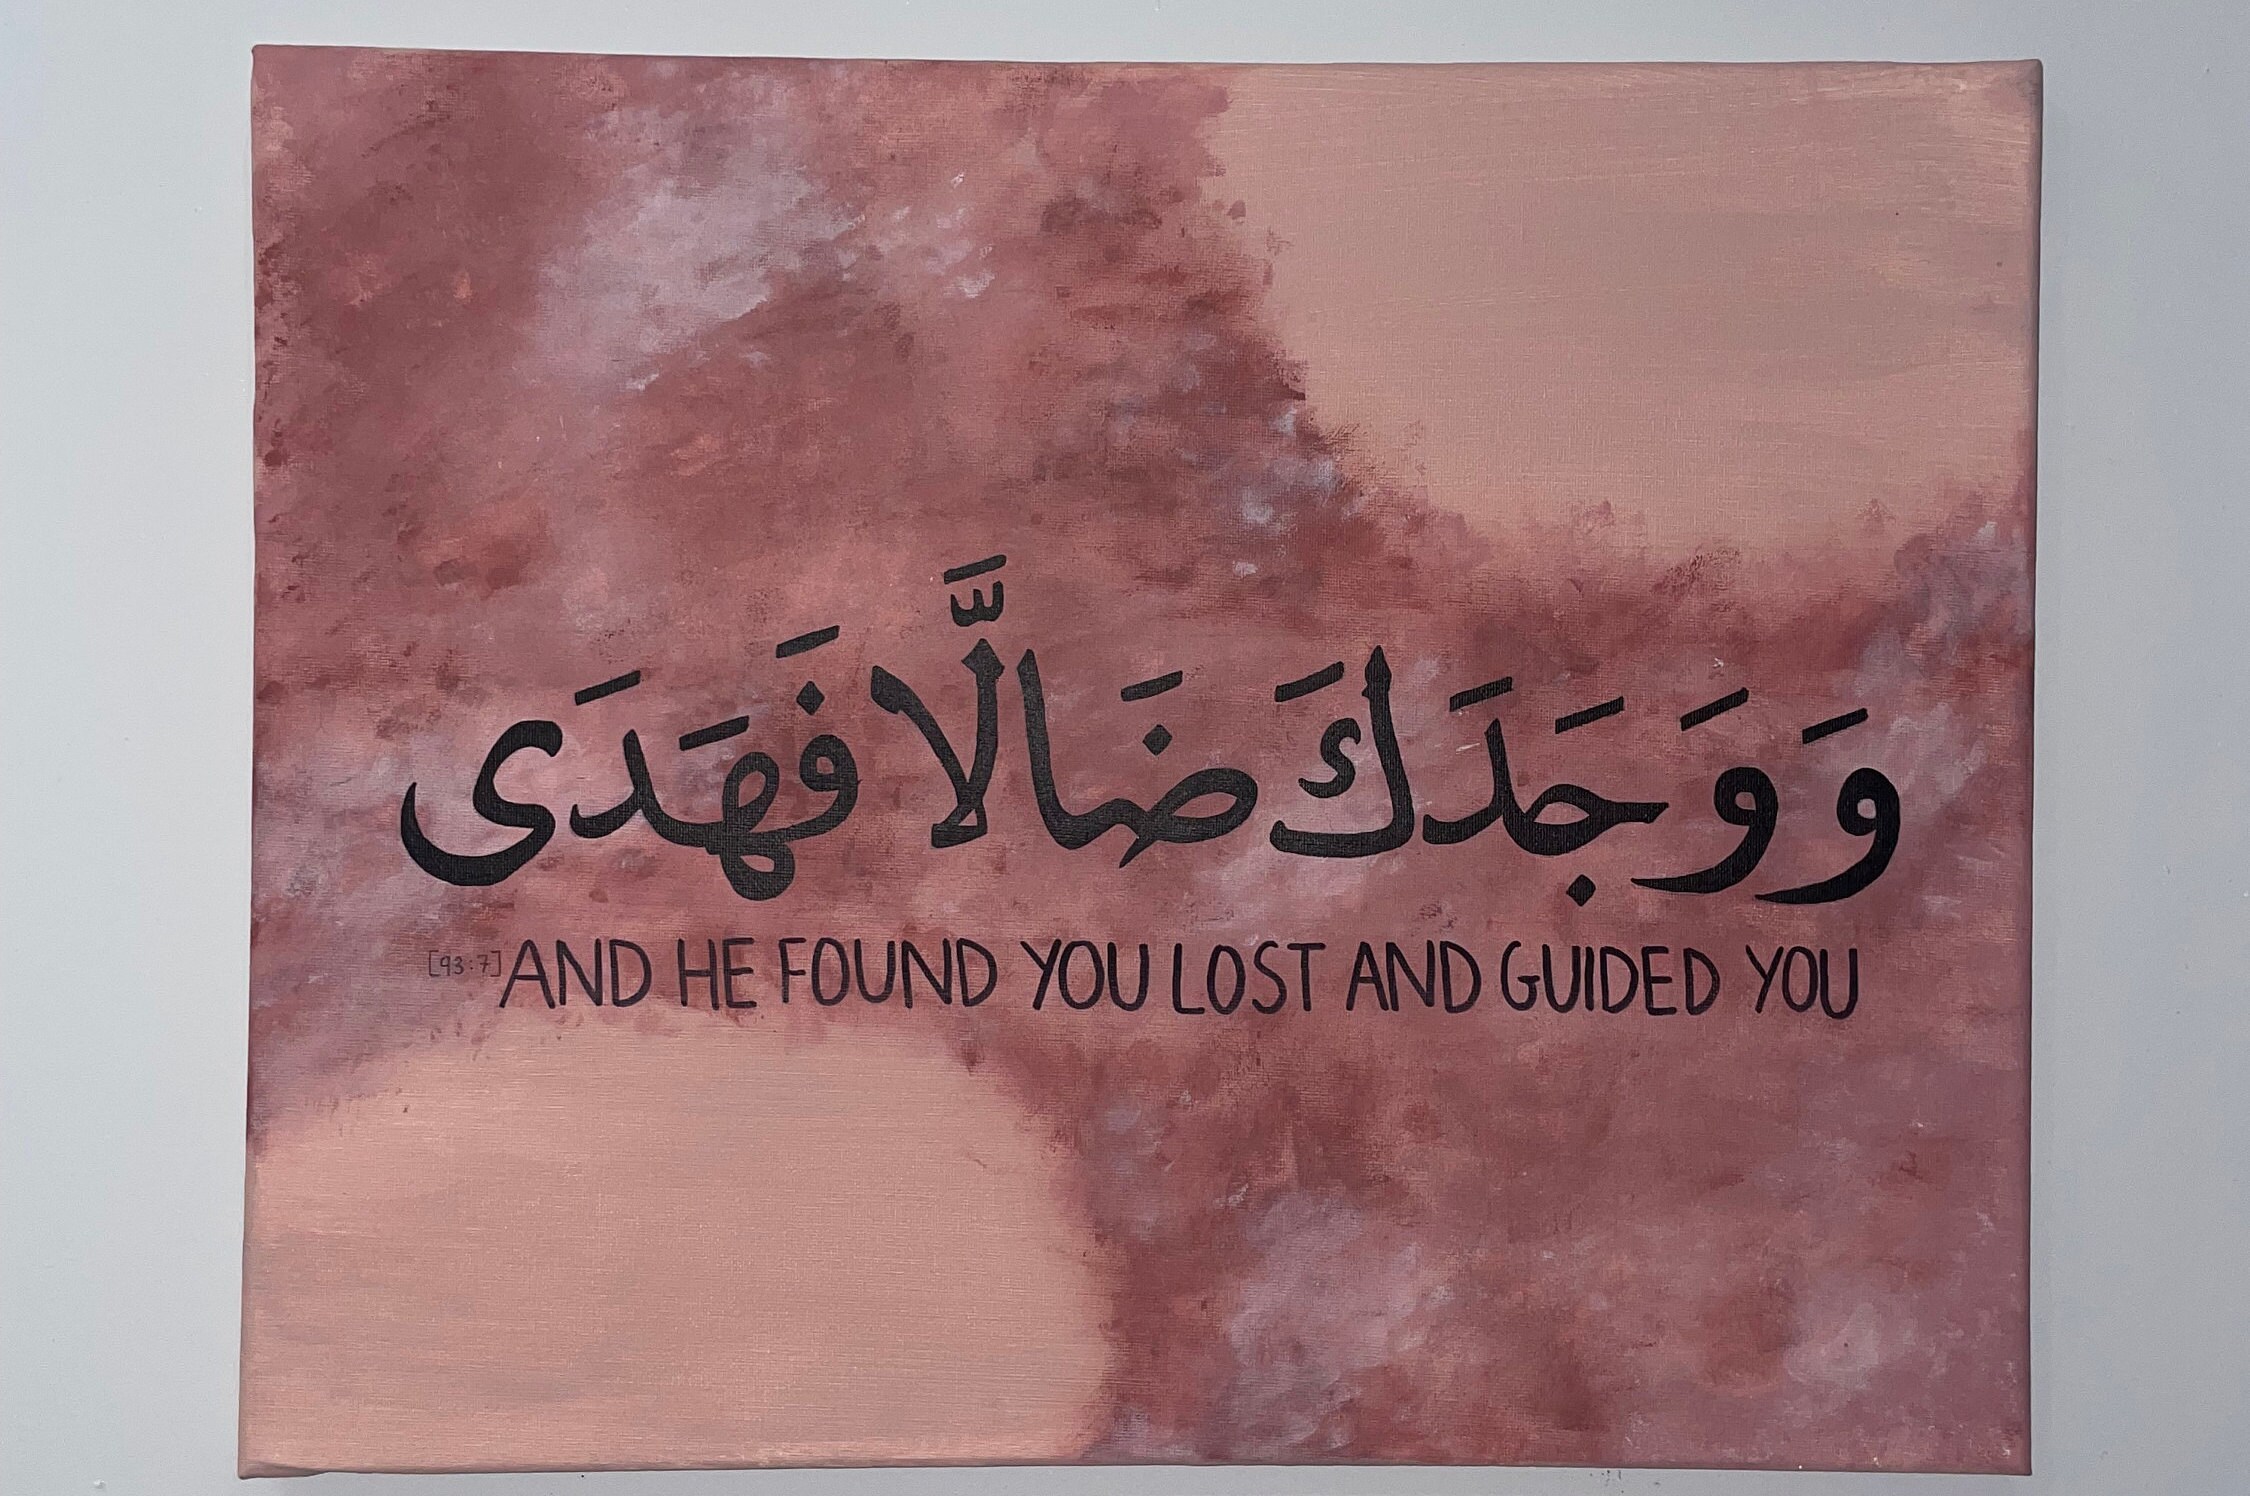 وَوَجَدَكَ ضَالَّا فَهَدَى
[93:7] AND HE FOUND YOU LOST AND GUIDED YOU